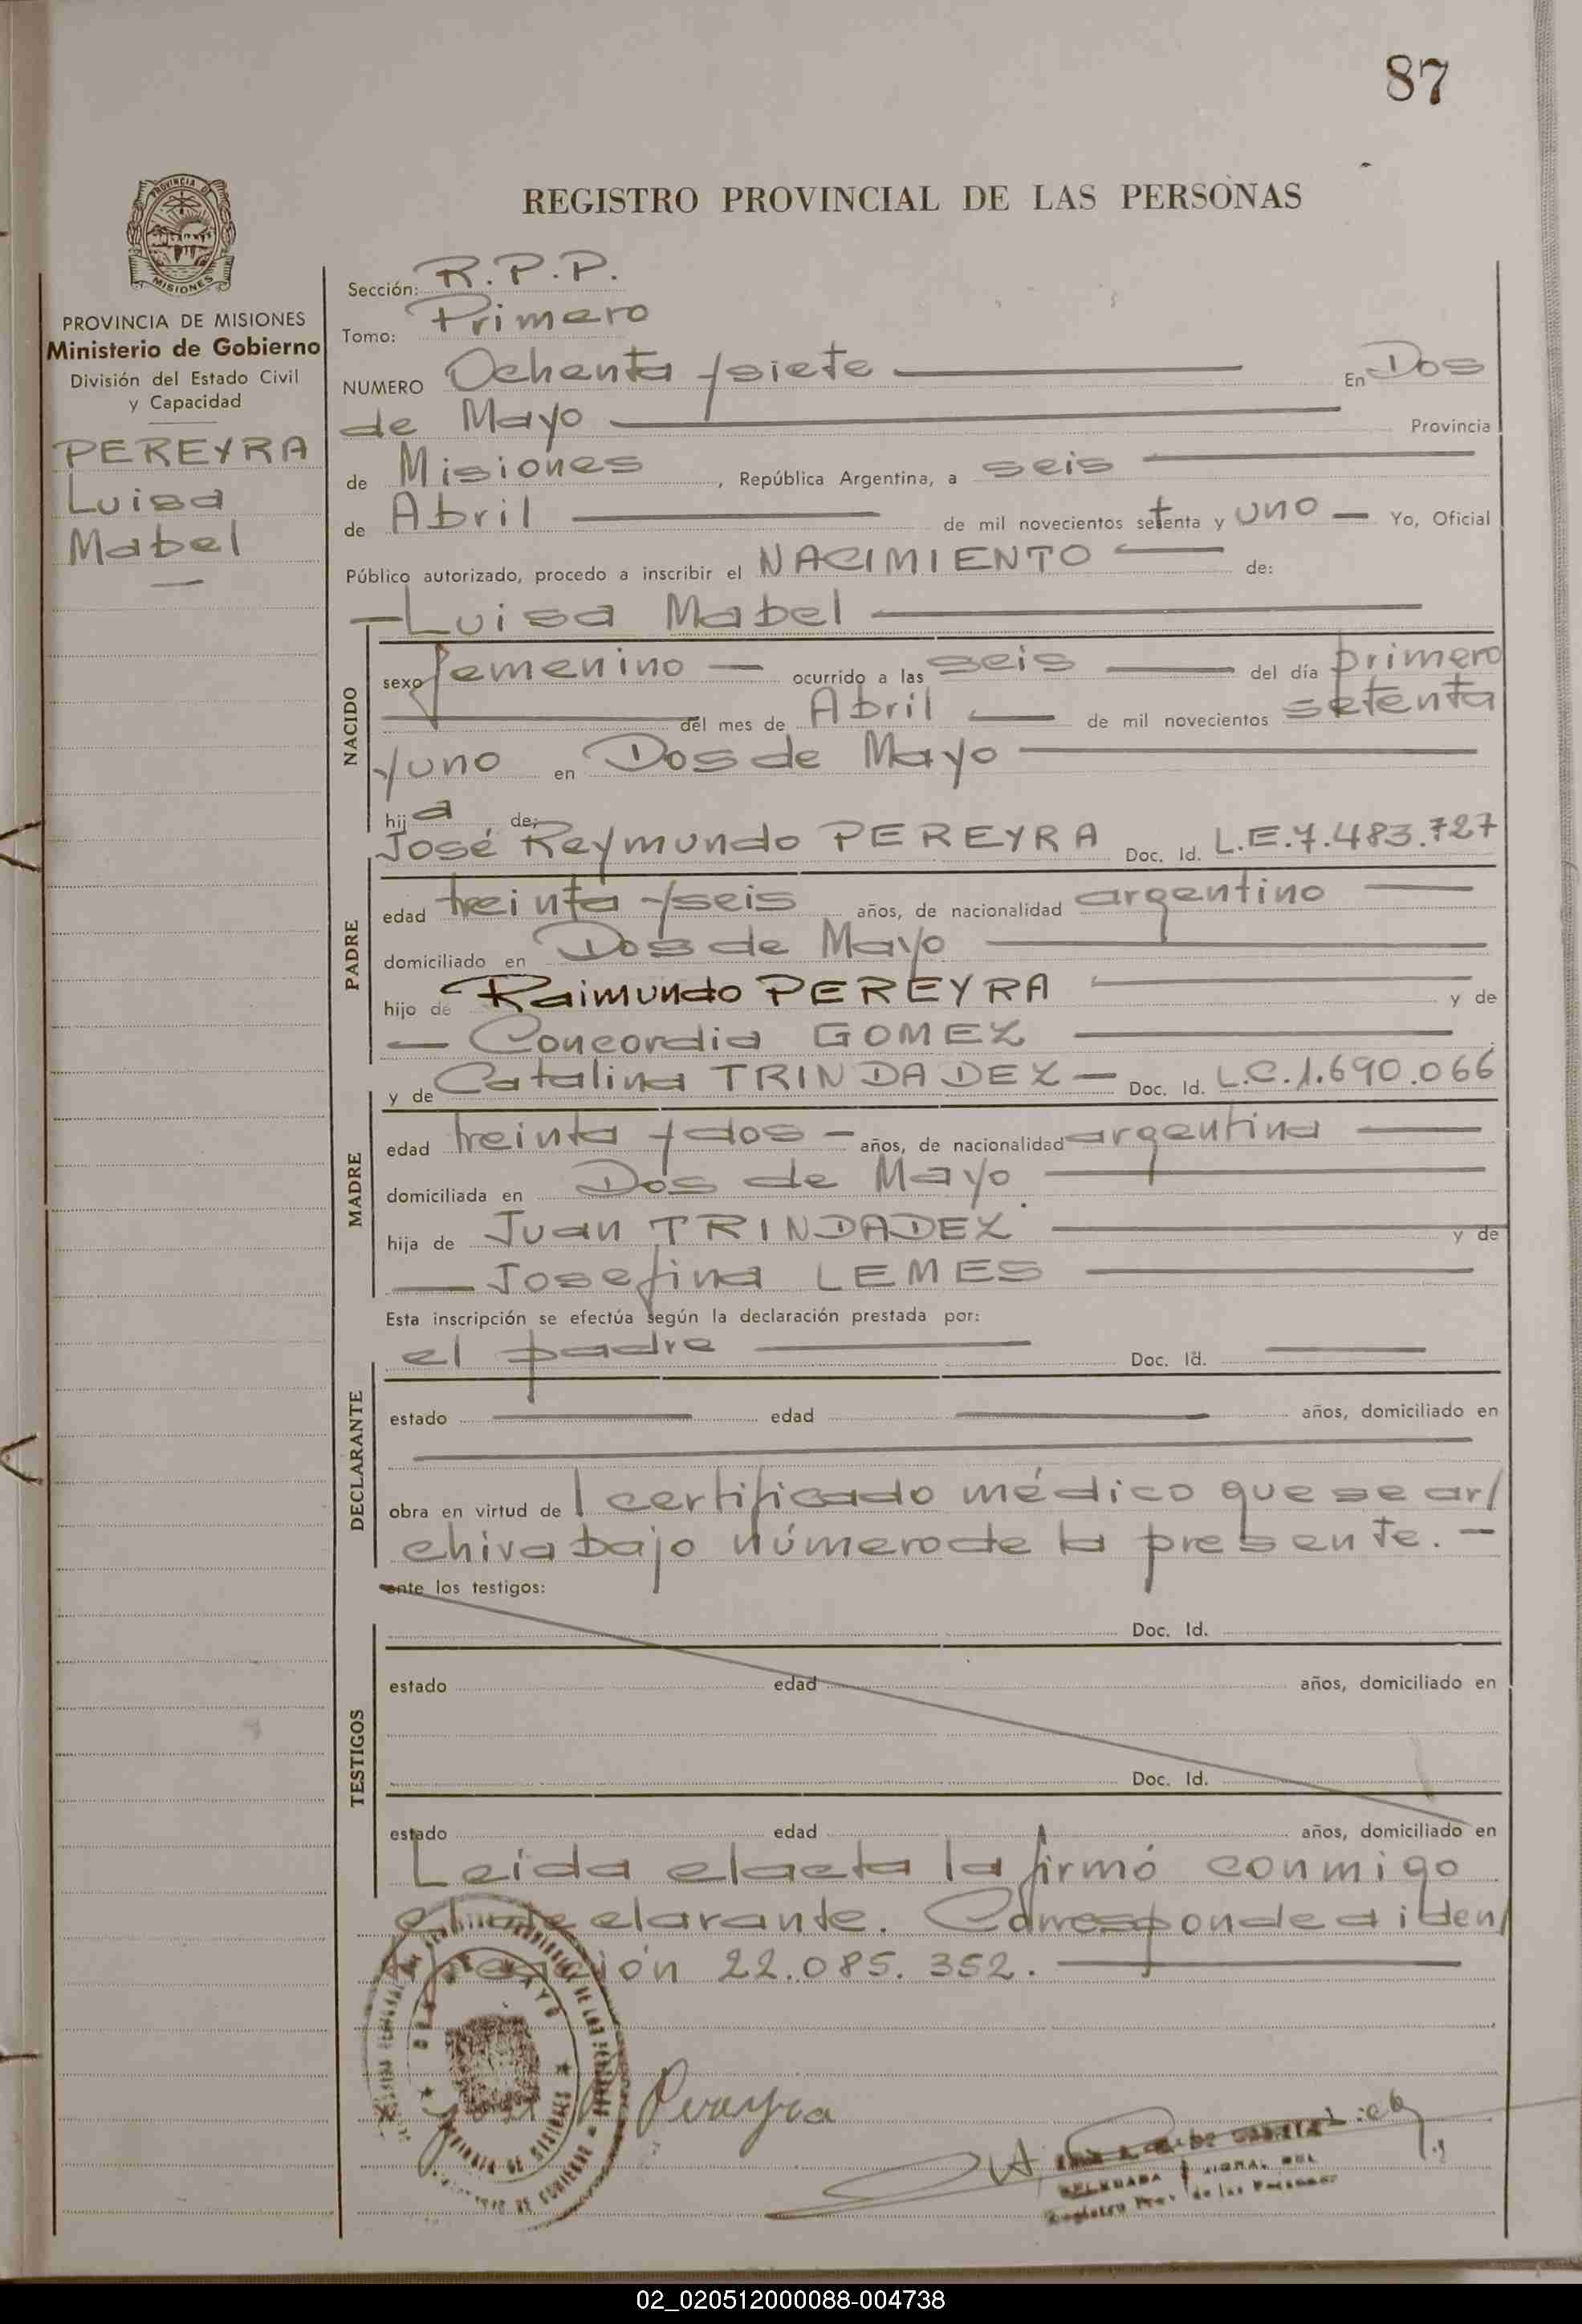 87
PROVINCIA DE
MISIONES
REGISTRO PROVINCIAL DE LAS PERSONAS
PROVINCIA DE MISIONES
Ministerio de Gobierno
División del Estado Civil
y Capacidad
PEREYRA
Luisa
Mabel
Sección: R.P.P.
Tomo: Primero
NUMERO Ochenta y siete En Dos
de Mayo Provincia
de Misiones, República Argentina, a seis
de Abril de mil novecientos setenta y uno Yo, Oficial
Público autorizado, procedo a inscribir el NACIMIENTO de:
Luisa Mabel
NACIDO
sexo femenino ocurrido a las seis del día primero
del mes de Abril de mil novecientos setenta
y uno en Dos de Mayo
hija de:
José Reymundo PEREYRA Doc. Id. L.E.7.483.727
PADRE
edad treinta y seis años, de nacionalidad argentino
domiciliado en Dos de Mayo
hijo de Raimundo PEREYRA y de
Concordia GOMEZ
y de Catalina TRINDADEZ Doc. Id. L.C.1.690.066
MADRE
edad treinta y dos años, de nacionalidad argentina
domiciliada en Dos de Mayo
hija de Juan TRINDADEZ y de
Josefina LEMES
Esta inscripción se efectúa según la declaración prestada por:
el padre Doc. Id.
DECLARANTE
estado edad años, domiciliado en
obra en virtud del certificado médico que se ar/
chiva bajo número de la presente.
ante los testigos:
Doc. Id.
TESTIGOS
estado edad años, domiciliado en
Doc. Id.
estado edad años, domiciliado en
Leída el acta la firmó conmigo
el declarante. Corresponde a iden/
tificación 22.085.352.
Pereyra
02_020512000088-004738